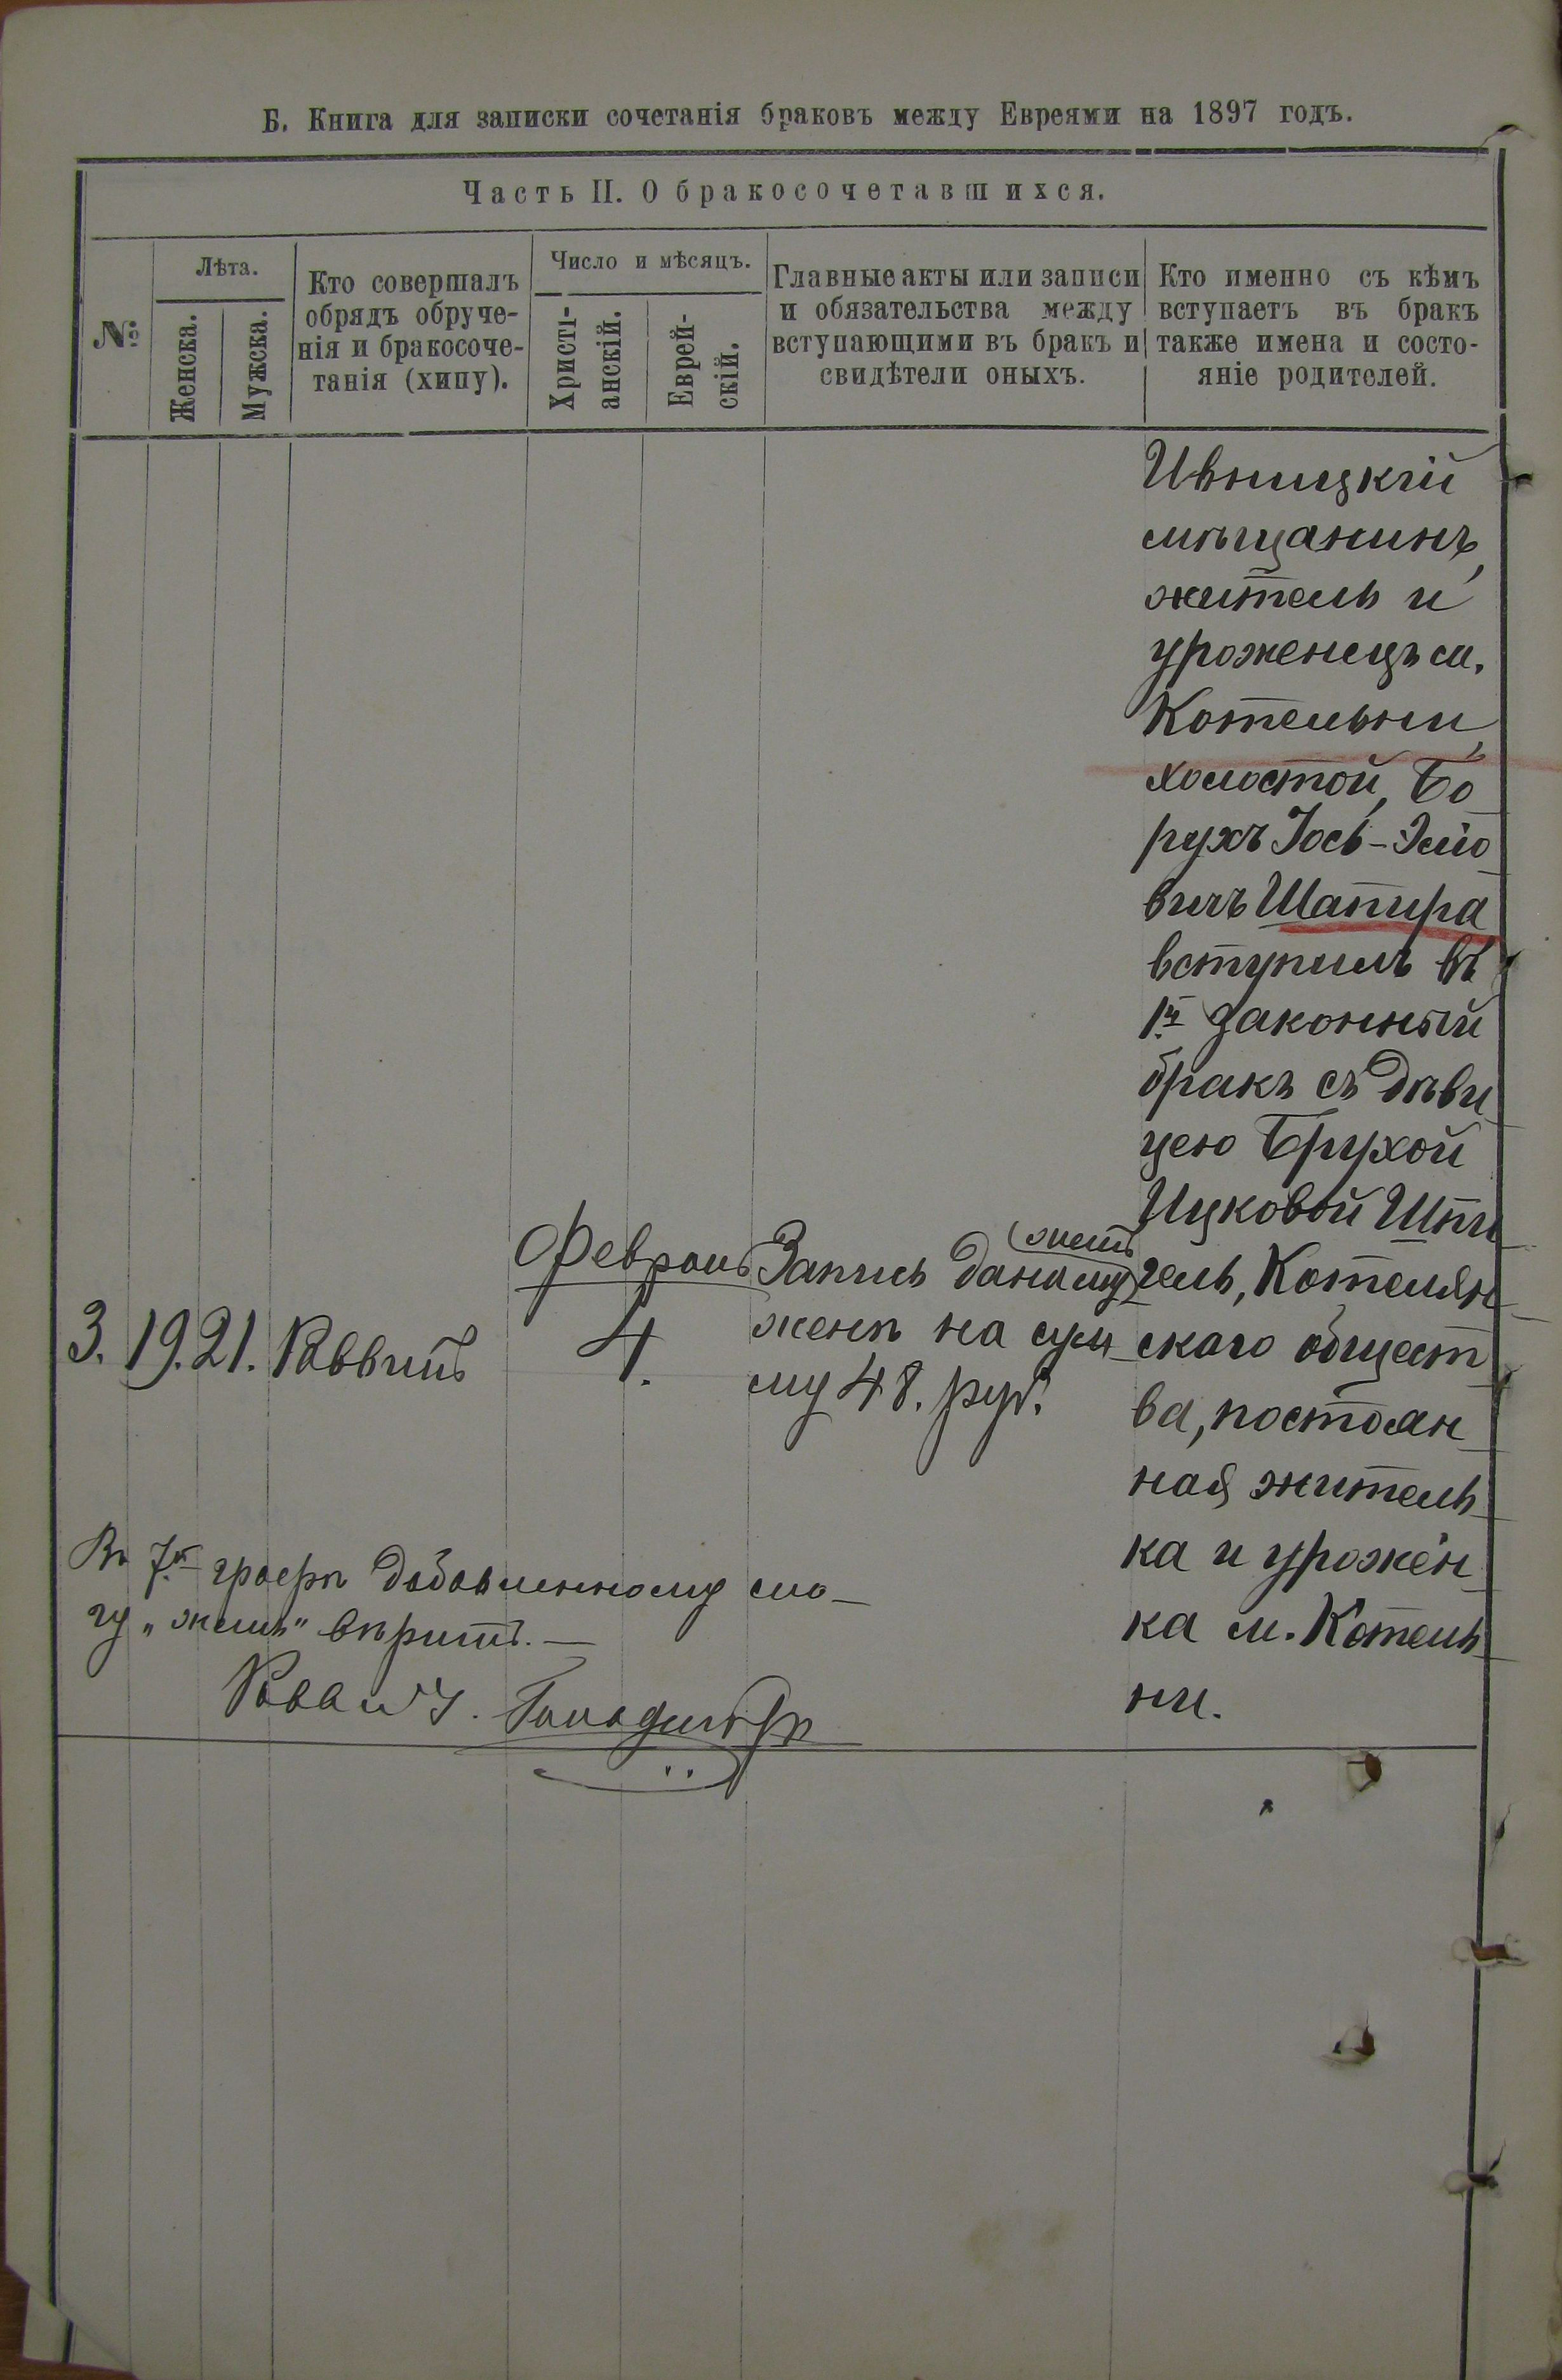 Б. Книга для записки сочетанія браковъ между Евреями на 1897 годъ.
Часть II. О бракосочетавшихся.
№
Лѣта.
Женска.
Мужска.
Кто совершалъ
обрядъ обруче-
нія и бракосоче-
танія (хипу).
Число и мѣсяцъ.
Христі-
анскій.
Еврей-
скій.
Главные акты или записи
и обязательства между
вступающими въ бракъ и
свидѣтели оныхъ.
Кто именно съ кѣмъ
вступаетъ въ бракъ
также имена и состо-
яніе родителей.
3. 19. 21. Раввинъ
Февраль
4.
Запись дана му
(жемъ)
женѣ на сум
му 48. руб.
Ивницкій
мѣщанинъ,
житель и
уроженецъ м.
Котельни,
холостой, Бо
рухъ Іось-Элио
вичъ Шапира
вступилъ въ
1й законный
бракъ съ дѣви
цею Брухой
Ицковой Шпи
гель, Котелян
скаго общест
ва, постоян
ная житель
ка и урожен
ка м. Котель
ни.
Въ 7й графѣ добавленному сло-
гу „жемъ" вѣрить. —
Равв